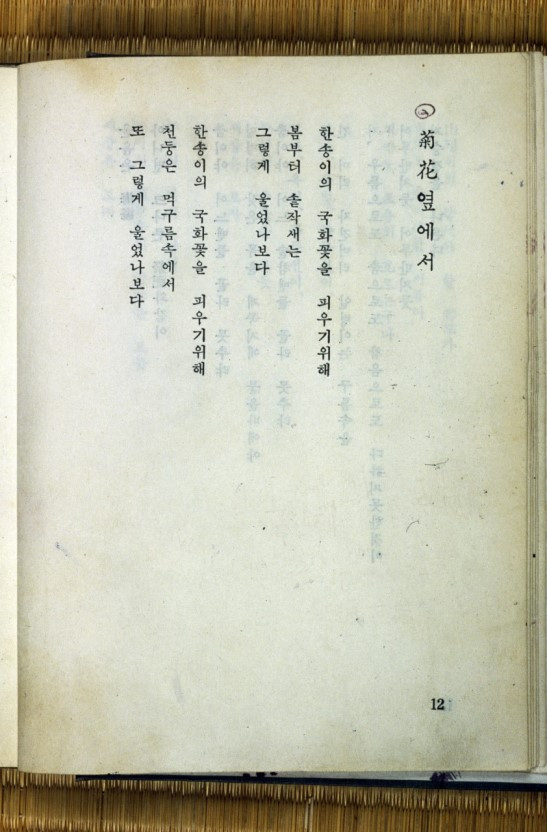 菊花옆에서
한송이의 국화꽃을 피우기위해
봄부터 솥작새는
그렇게 울었나보다
한송이의 국화꽃을 피우기위해
천둥은 먹구름속에서
또 그렇게 울었나보다
12